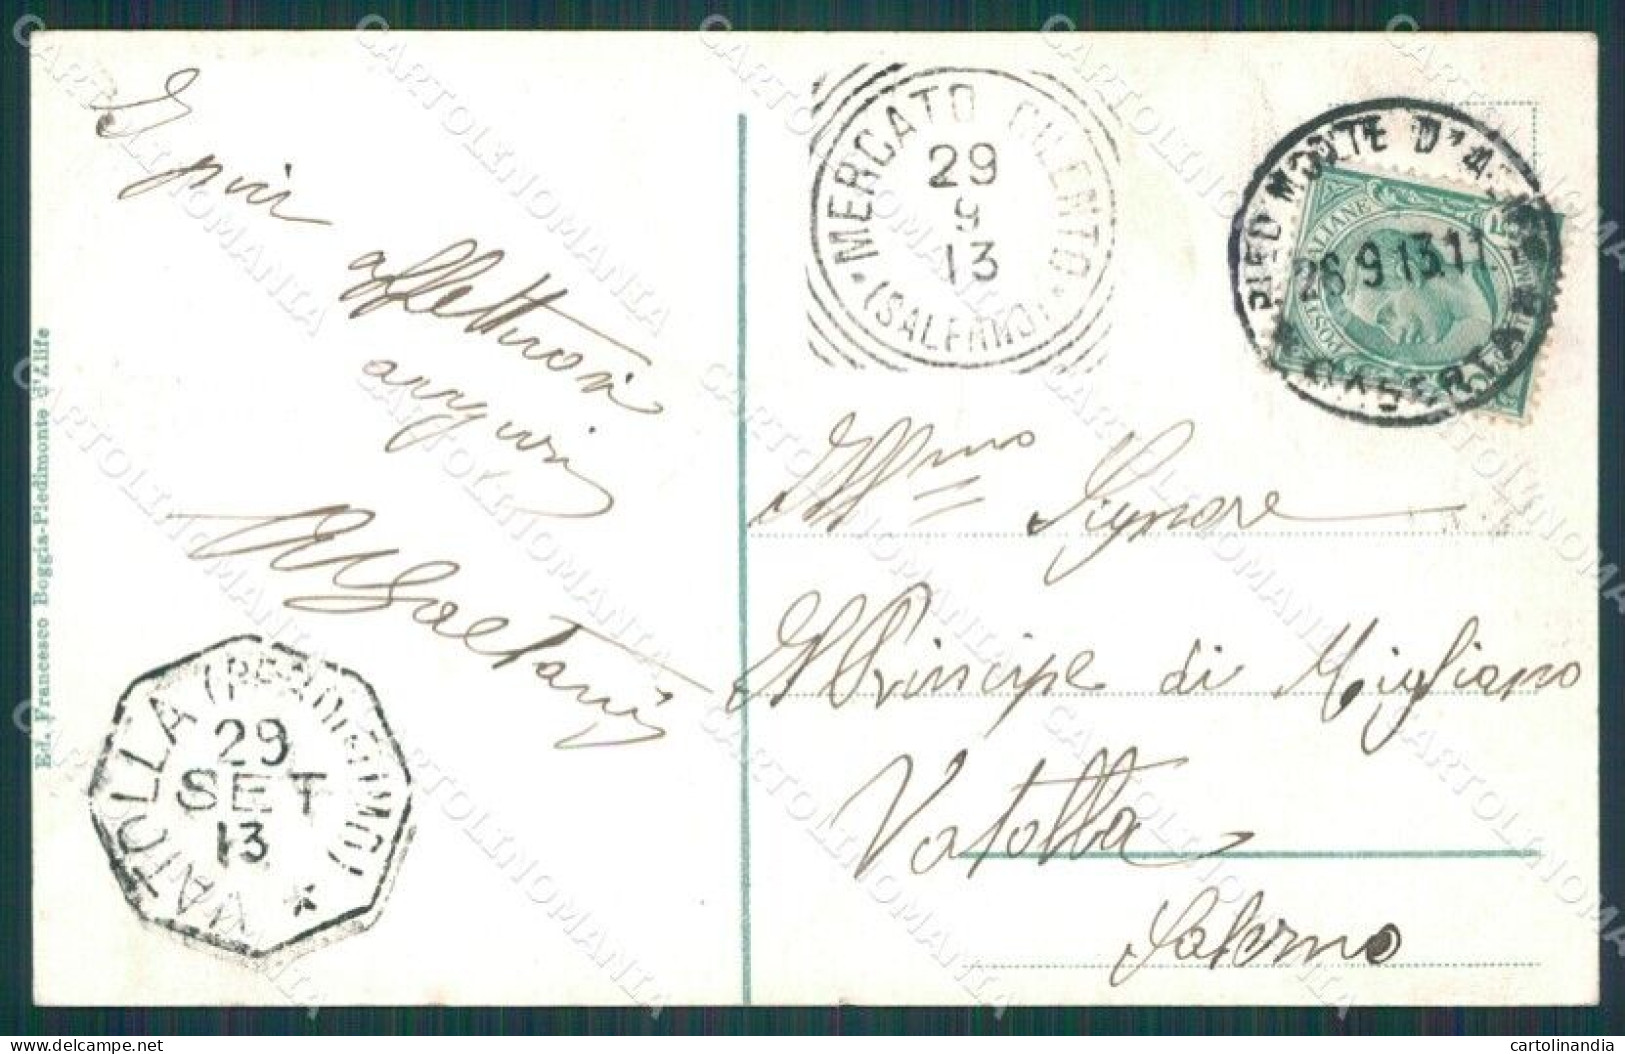 I più
affettuosi
auguri
Gaetani
Ed. Francesco Boggia-Piedimonte d'Alife
VATOLLA (PERDIFUMO)
29
SET
13
MERCATO CILENTO
29
9
13
(SALERNO)
PIEDIMONTE D'ALIFE
26 9 13 11
CASERTA
POSTE ITALIANE
Ill.mo Signore
Il Principe di Migliano
Vatolla
Salerno
CARTOLINOMANIA
cartolinandia